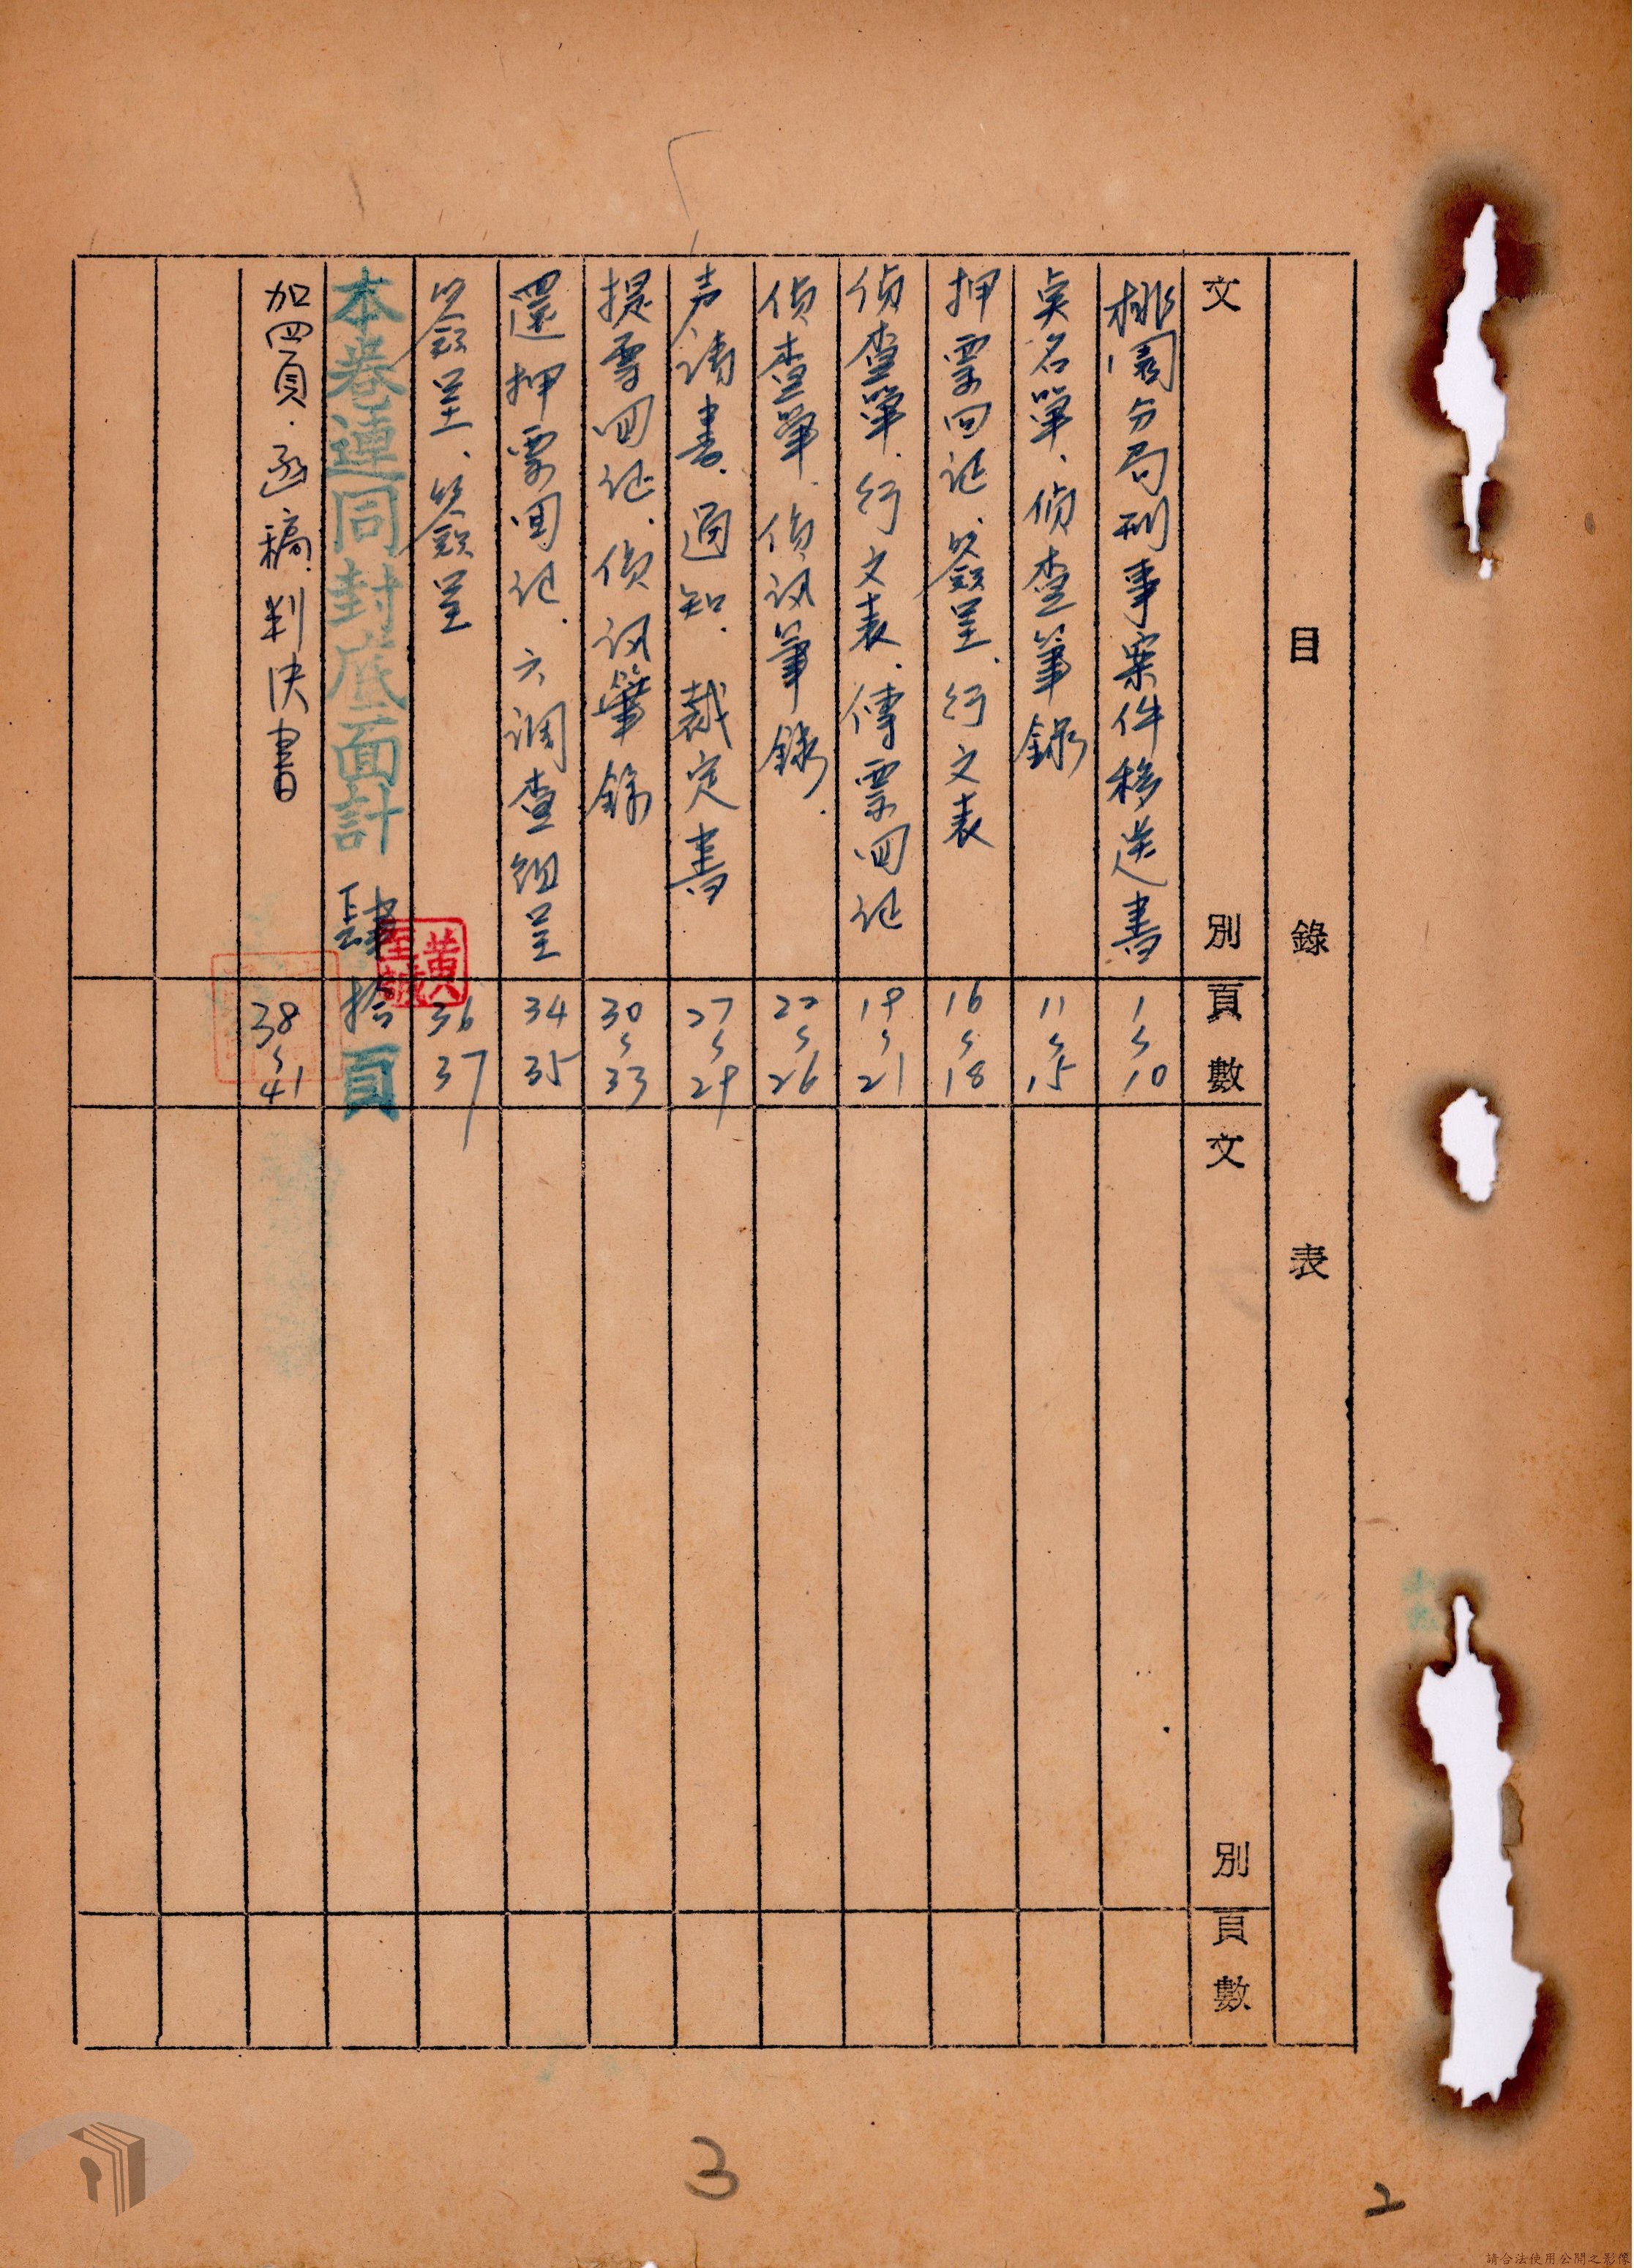 目錄表
文別 頁數 文別 頁數
桃園分局刑事案件移送書 1 10
点名單、偵查筆錄 11 15
押票回证、簽呈、行文表 16 18
偵查單、行文表、傳票回证 19 21
偵查單、偵訊筆錄 22 26
声请書、通知、裁定書 27 29
提票回证、偵訊筆錄 30 33
還押票回证、六调查组呈 34 35
簽呈、簽呈 36 37
本卷連同封底面計肆拾頁
加四頁、函稿、判决書 38 41
3
2
請合法使用公開之影像